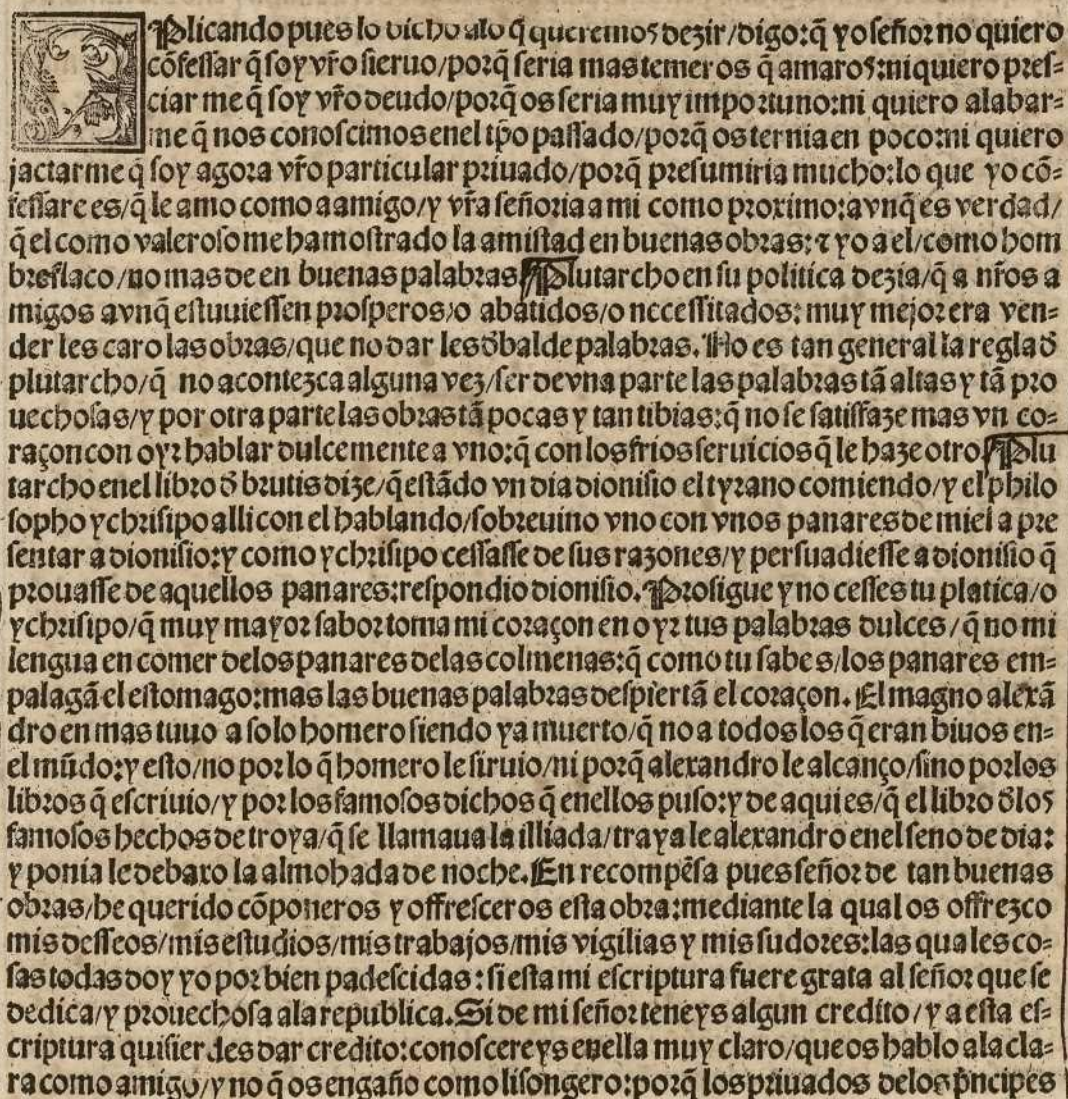 APlicando pues lo dicho alo q̃ queremos dezir/digo:q̃ yo señor no quiero
cõfessar q̃ soy vr̃o sieruo/porq̃ seria mas temeros q̃ amaros:ni quiero pres-
ciar me q̃ soy vr̃o deudo/porq̃ os seria muy importuno:ni quiero alabar-
me q̃ nos conoscimos enel tp̃o passado/porq̃ os ternia en poco:ni quiero
jactarme q̃ soy agora vr̃o particular priuado/porq̃ presumiria mucho:lo que yo cõ-
fessare es/q̃ le amo como a amigo/y vr̃a señoria a mi como proximo:avnq̃ es verdad/
q̃ el como valeroso me ha mostrado la amistad en buenas obras: ⁊ yo a el/como hom
bre flaco/no mas de en buenas palabras. Plutarcho en su politica dezia/q̃ a nr̃os a
migos avnq̃ estuuiessen prosperos/o abatidos/o necessitados: muy mejor era ven-
der les caro las obras/que no dar les d̃ balde palabras. No es tan general la regla d̃
plutarcho/q̃ no acontezca alguna vez/ser de vna parte las palabras tã altas y tã pro
uechosas/y por otra parte las obras tã pocas y tan tibias:q̃ no se satisfaze mas vn co-
raçon con oyr hablar dulcemente a vno:q̃ con los frios seruicios q̃ le haze otro. Plu
tarcho enel libro d̃ brutis dize/q̃ estãdo vn dia dionisio el tyrano comiendo/y el philo
sopho ychrisipo alli con el hablando/sobreuino vno con vnos panares de miel a pre
sentar a dionisio:y como ychrisipo cessasse de sus razones/y persuadiesse a dionisio q̃
prouasse de aquellos panares:respondio dionisio. Prosigue y no cesses tu platica/o
ychrisipo/q̃ muy mayor sabor toma mi coraçon en oyr tus palabras dulces/q̃ no mi
lengua en comer delos panares delas colmenas:q̃ como tu sabes/los panares em-
palagã el estomago:mas las buenas palabras despiertã el coraçon. El magno alexã
dro en mas tuuo a solo homero siendo ya muerto/q̃ no a todos los q̃ eran biuos en-
el mũdo:y esto/no por lo q̃ homero le siruio/ni porq̃ alexandro le alcanço/sino por los
libros q̃ escriuio/y por los famosos dichos q̃ enellos puso:y de aqui es/q̃ el libro d̃los
famosos hechos de troya/q̃ se llamaua la illiada/traya le alexandro enel seno de dia:
y ponia le debaxo la almohada de noche. En recompẽsa pues señor de tan buenas
obras/he querido cõponeros y offresceros esta obra:mediante la qual os offrezco
mis desseos/mis estudios/mis trabajos/mis vigilias y mis sudores:las quales co-
sas todas doy yo por bien padescidas:si esta mi escriptura fuere grata al señor que se
dedica/y prouechosa ala republica. Si de mi señor teneys algun credito/y a esta es-
criptura quisierdes dar credito:conoscereys enella muy claro/que os hablo ala cla-
ra como amigo/y no q̃ os engaño como lisongero:porq̃ los priuados delos prĩncipes